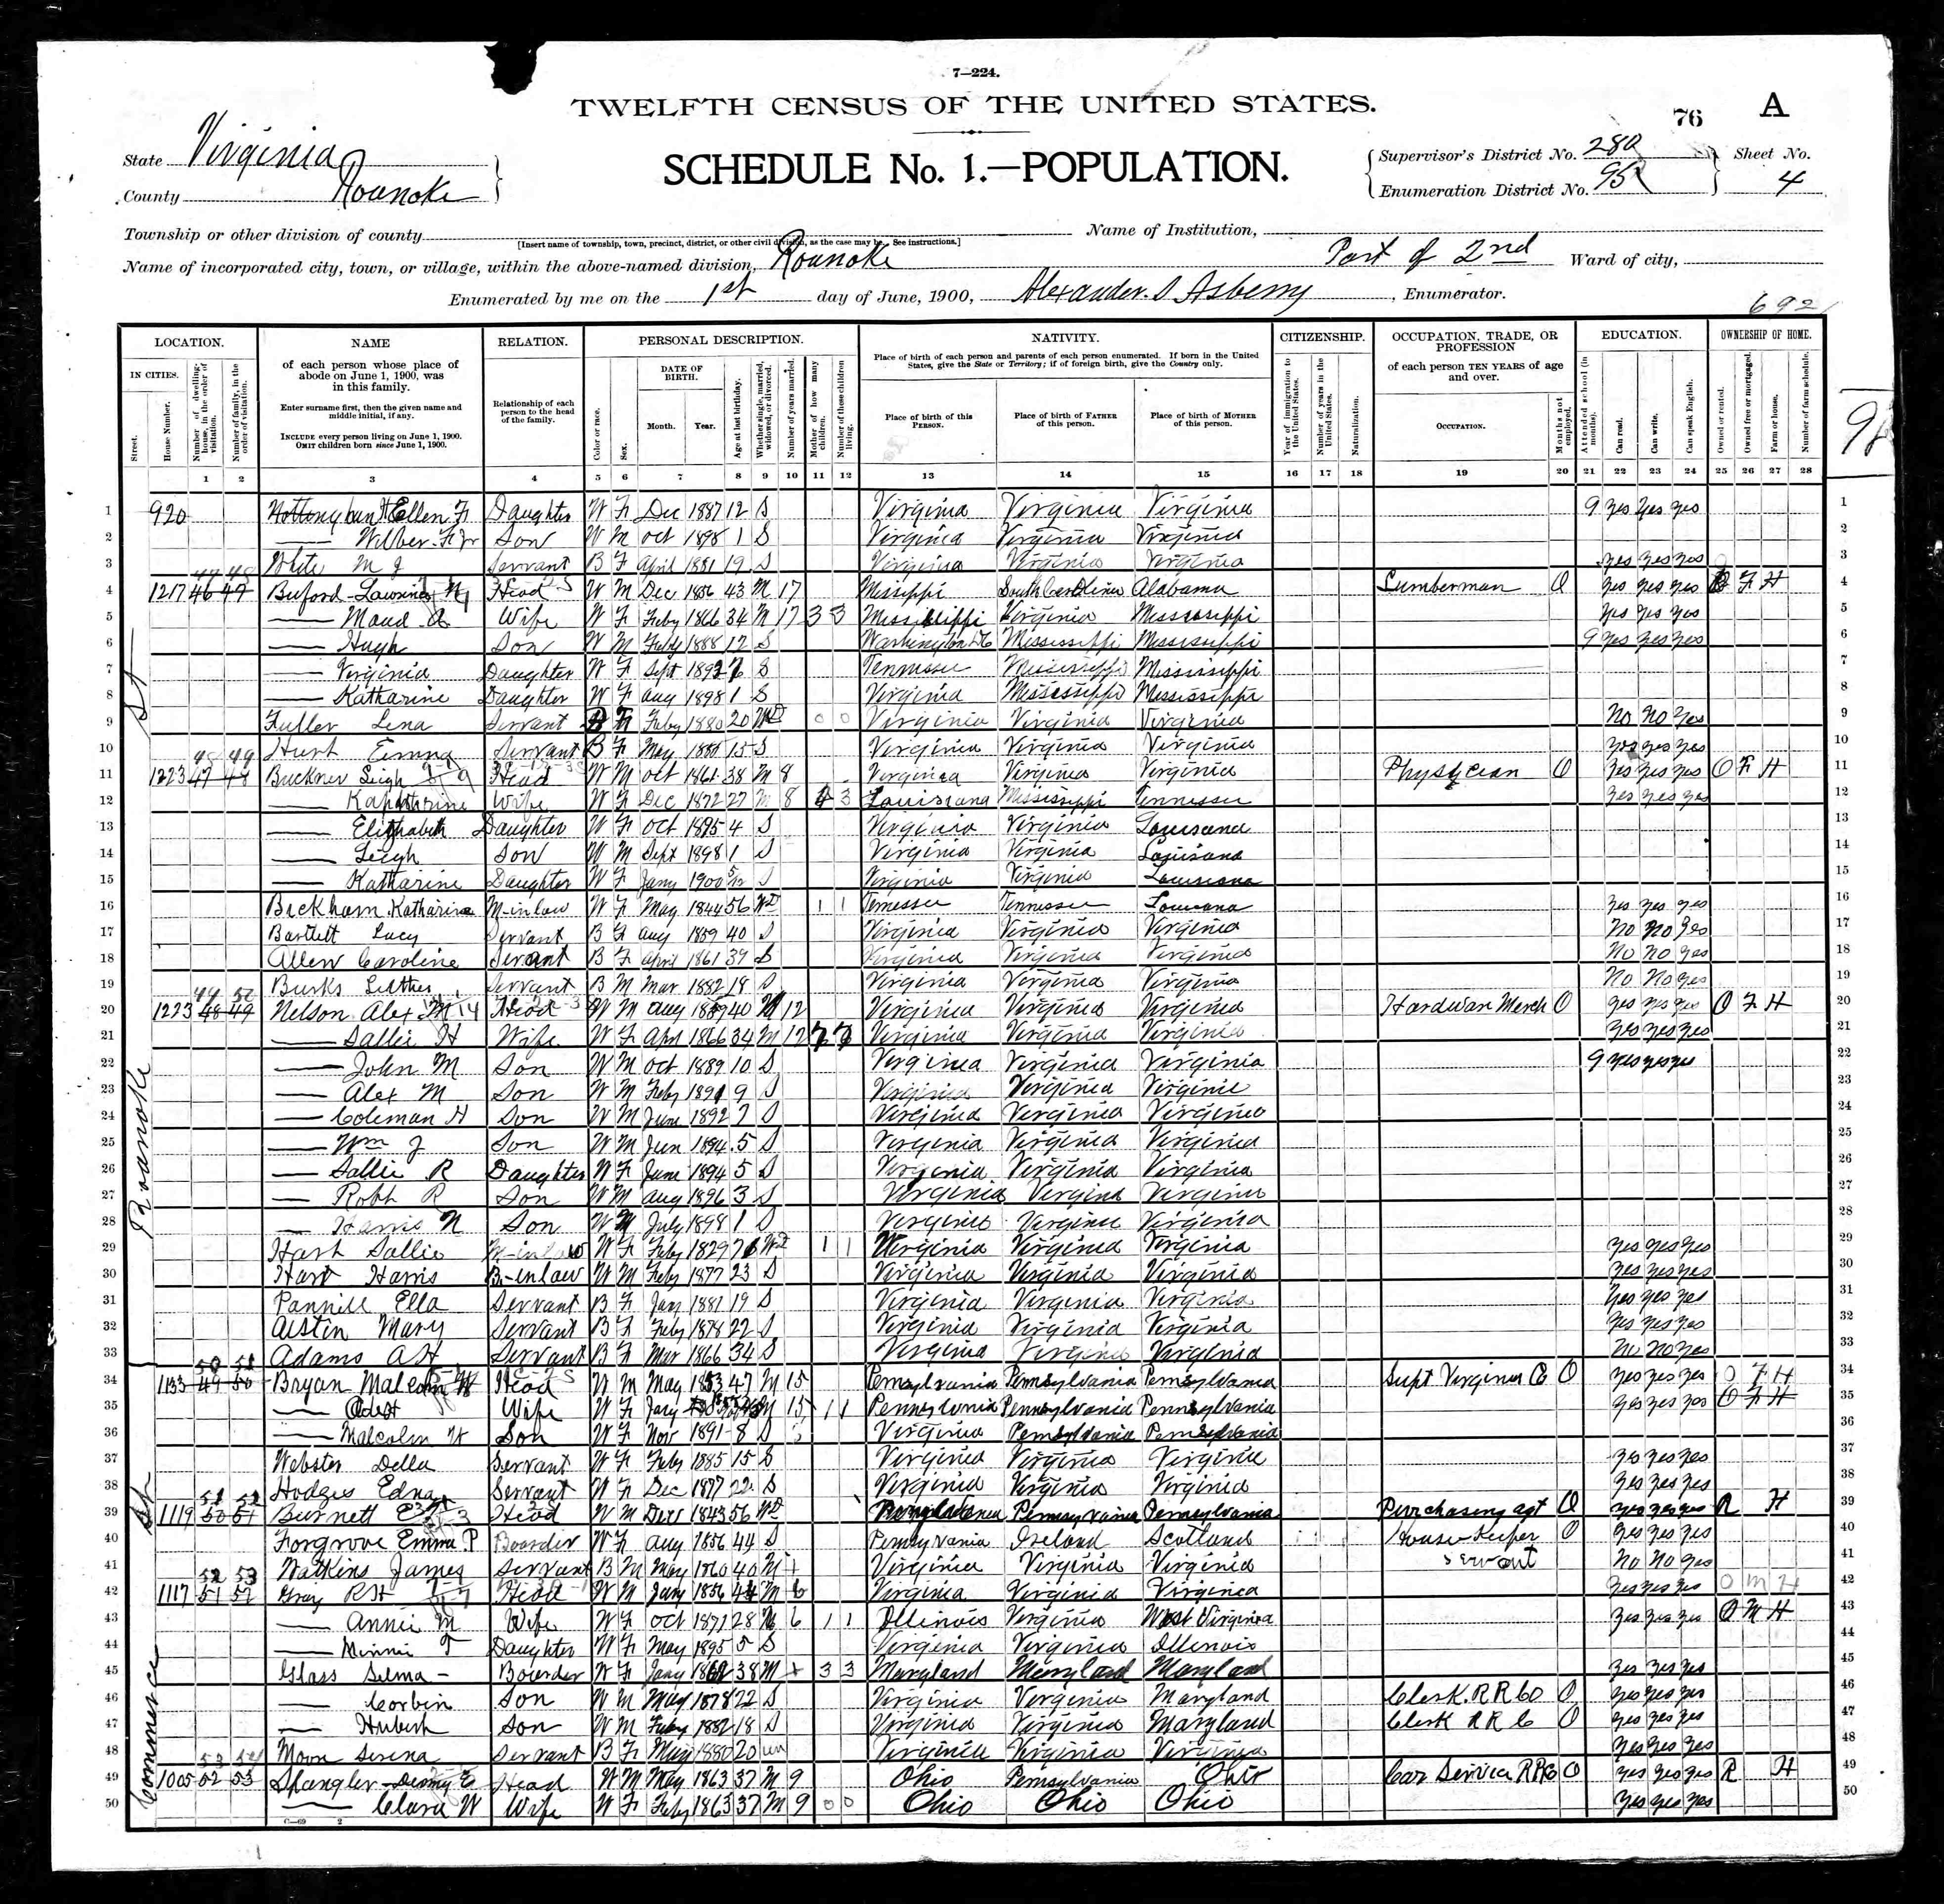 7—224.
TWELFTH CENSUS OF THE UNITED STATES.
76 A
State Virginia
County Roanoke
SCHEDULE No. 1.—POPULATION.
Supervisor's District No. 280
Enumeration District No. 95
Sheet No. 4
Township or other division of county
[Insert name of township, town, precinct, district, or other civil division, as the case may be. See instructions.]
Name of Institution,
Name of incorporated city, town, or village, within the above-named division, Roanoke
Part of 2nd Ward of city,
Enumerated by me on the 1st day of June, 1900, Alexander. S Asberry, Enumerator.
692
LOCATION. NAME RELATION. PERSONAL DESCRIPTION. NATIVITY. CITIZENSHIP. OCCUPATION, TRADE, OR PROFESSION EDUCATION. OWNERSHIP OF HOME.
IN CITIES.
Street.
House Number.
Number of dwelling-house, in the order of visitation.
Number of family, in the order of visitation.
of each person whose place of abode on June 1, 1900, was in this family.
Enter surname first, then the given name and middle initial, if any.
INCLUDE every person living on June 1, 1900.
OMIT children born since June 1, 1900.
Relationship of each person to the head of the family.
Color or race.
Sex.
DATE OF BIRTH.
Month. Year.
Age at last birthday.
Whether single, married, widowed, or divorced.
Number of years married.
Mother of how many children.
Number of these children living.
Place of birth of each person and parents of each person enumerated. If born in the United States, give the State or Territory; if of foreign birth, give the Country only.
Place of birth of this PERSON.
Place of birth of FATHER of this person.
Place of birth of MOTHER of this person.
Year of immigration to the United States.
Number of years in the United States.
Naturalization.
of each person TEN YEARS of age and over.
OCCUPATION.
Months not employed.
Attended school (in months).
Can read.
Can write.
Can speak English.
Owned or rented.
Owned free or mortgaged.
Farm or house.
Number of farm schedule.
1 2 3 4 5 6 7 8 9 10 11 12 13 14 15 16 17 18 19 20 21 22 23 24 25 26 27 28
1 920 Ellen F Daughter W F Dec 1887 12 S Virginia Virginia Virginia 9 yes yes yes 1
2 —— Wilber F Jr Son W M oct 1898 1 S Virginia Virginia Virginia 2
3 White M J Servant B F April 1881 19 S Virginia Virginia Virginia yes yes yes 3
4 1217 46 47 Buford W Head W M Dec 1856 43 M 17 Missippi South Carolina Alabama Lumberman O yes yes yes O F H 4
5 —— Maud A Wife W F Feby 1866 34 M 17 3 3 Mississippi Virginia Mississippi yes yes yes 5
6 —— Hugh Son W M Feby 1888 12 S Washington DC Mississippi Mississippi 9 yes yes yes 6
7 —— Virginia Daughter W F Sept 1893 S Tennessee Mississippi Mississippi 7
8 —— Katharine Daughter W F aug 1898 1 S Virginia Mississippi Mississippi 8
9 Fuller Lena Servant B F Feby 1880 20 Wd 0 0 Virginia Virginia Virginia No No yes 9
10 Hurt Emma Servant B F May 1885 15 S Virginia Virginia Virginia yes yes yes 10
11 1223 47 48 Buckner Leigh Head W M oct 1861 38 M 8 Virginia Virginia Virginia Physician O yes yes yes O F H 11
12 —— Katharine Wife W F Dec 1872 27 M 8 4 3 Louisiana Mississippi Tennessee yes yes yes 12
13 —— Elizabeth Daughter W F oct 1895 4 S Virginia Virginia Louisiana 13
14 —— Leigh Son W M Sept 1898 1 S Virginia Virginia Louisiana 14
15 —— Katharine Daughter W F Jany 1900 5/12 S Virginia Virginia Louisiana 15
16 Beckham Katharine M-in law W F May 1844 56 Wd 1 1 Tennessee Tennessee Louisana yes yes yes 16
17 Bartlett Lucy Servant B F aug 1859 40 S Virginia Virginia Virginia No No yes 17
18 Allen Caroline Servant B F april 1861 39 S Virginia Virginia Virginia No No yes 18
19 Burks Luther Servant B M Mar 1882 18 S Virginia Virginia Virginia No No yes 19
20 1223 48 49 Nelson Alex M Head W M aug 1859 40 M 12 Virginia Virginia Virginia Hardwar Merch O yes yes yes O F H 20
21 —— Sallie H Wife W F Apr 1866 34 M 12 7 7 Virginia Virginia Virginia yes yes yes 21
22 —— John M Son W M oct 1889 10 S Virginia Virginia Virginia 9 yes yes yes 22
23 —— Alex M Son W M Feby 1891 9 S Virginia Virginia Virginia 23
24 —— Coleman H Son W M June 1892 7 S Virginia Virginia Virginia 24
25 —— Wm J Son W M Jun 1894 5 S Virginia Virginia Virginia 25
26 —— Sallie R Daughter W F June 1894 5 S Virginia Virginia Virginia 26
27 —— Robt R Son W M aug 1896 3 S Virginia Virginia Virginia 27
28 —— Harris N Son W M July 1898 1 S Virginia Virginia Virginia 28
29 Hart Sallie M-in law W F Feby 1829 71 Wd 1 1 Virginia Virginia Virginia yes yes yes 29
30 Hart Harris B-in law W M Feby 1877 23 S Virginia Virginia Virginia yes yes yes 30
31 Pannill Ella Servant B F Jan 1881 19 S Virginia Virginia Virginia yes yes yes 31
32 Astin Mary Servant B F Feby 1878 22 S Virginia Virginia Virginia yes yes yes 32
33 Adams A H Servant B F Mar 1866 34 S Virginia Virginia Virginia No No yes 33
34 1133 49 50 Bryan Malcolm W Head W M May 1853 47 M 15 Pennsylvania Pennsylvania Pennsylvania Supt Virginia Co O yes yes yes O F H 34
35 —— Wife W F Jany M 15 1 1 Pennsylvania Pennsylvania Pennsylvania yes yes yes O F H 35
36 —— Malcolm W Son W F Nov 1891 8 S Virginia Pennsylvania Pennsylvania 36
37 Webster Della Servant W F Feby 1885 15 S Virginia Virginia Virginia yes yes yes 37
38 Hodges Edna Servant W F Dec 1877 22 S Virginia Virginia Virginia yes yes yes 38
39 1119 50 51 Burnett Head W M Dec 1843 56 Wd Pennsylvania Pennsylvania Pennsylvania Purchasing agt O yes yes yes R H 39
40 Forgrove Emma P Boarder W F aug 1856 44 S Pennsylvania Ireland Scotland House Keeper O yes yes yes 40
41 Watkins James Servant B M May 1860 40 M + Virginia Virginia Virginia Servant No No yes 41
42 1117 51 52 Gray R H Head W M Jany 1856 44 M 6 Virginia Virginia Virginia yes yes yes O M H 42
43 —— Annie M Wife W F oct 1871 28 M 6 1 1 Illinois Virginia West Virginia yes yes yes O M H 43
44 —— Minnie T Daughter W F May 1895 5 S Virginia Virginia Illinois 44
45 Glass Selma Boarder W F Jany 1862 38 M + 3 3 Maryland Maryland Maryland yes yes yes 45
46 —— Corbin Son W M May 1878 22 S Virginia Virginia Maryland Clerk. R R Co O yes yes yes 46
47 —— Hubert Son W M Feby 1882 18 S Virginia Virginia Maryland Clerk R R C O yes yes yes 47
48 Moon Serena Servant B F 1880 20 un Virginia Virginia Virginia yes yes yes 48
49 1005 52 53 Spangler Head W M May 1863 37 M 9 Ohio Pennsylvania Ohio Car Service R R Co O yes yes yes R H 49
50 —— Clara W Wife W F Feby 1863 37 M 9 0 0 Ohio Ohio Ohio yes yes yes 50
Roanoke St
Commerce St
C—69 2